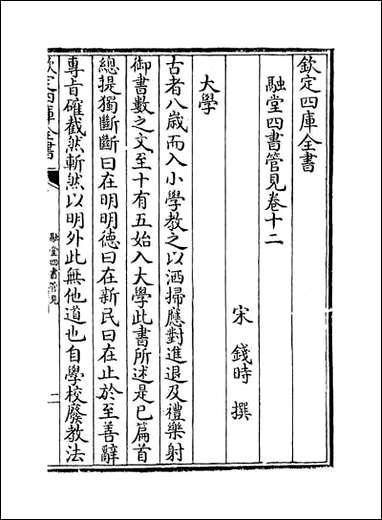 欽定四庫全書
融堂四書管見卷十二
宋 錢時 撰
大學
古者八歲而入小學教之以洒掃應對進退及禮樂射
御書數之文至十有五始入大學此書所述是已篇首
總提獨斷斷曰在明明德曰在新民曰在止於至善辭
專旨確截然斬然以明外此無他道也自學校廢教法
欽定四庫全書
融堂四書管見